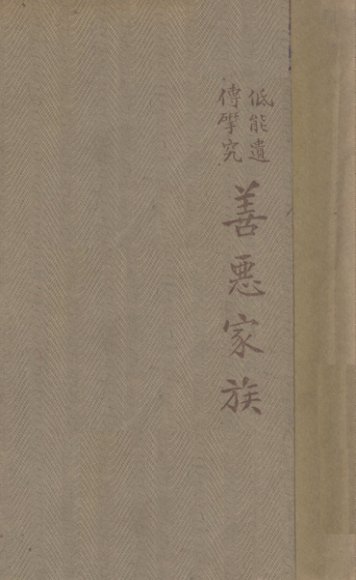 低能遺
傳研究
善惡家族